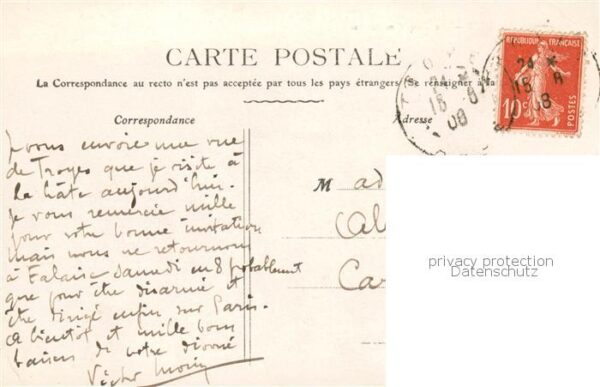 CARTE POSTALE
La Correspondance au recto n'est pas acceptée par tous les pays étrangers (Se renseigner à la
RÉPUBLIQUE FRANÇAISE
10c
POSTES
24
15 8
08
24
15 8
08
Correspondance
Adresse
Je vous envoie une vue
de Troyes que je visite à
la hâte aujourd'hui.
Je vous remercie mille
pour votre bonne invitation
mais nous ne retournons
à Falaise samedi en 8 probablement
que pour être désarmé et
être dirigé enfin sur Paris.
à bientôt et mille bons
baisers de votre dévoué
Victor
M ad
Al
Ca
privacy protection
Datenschutz